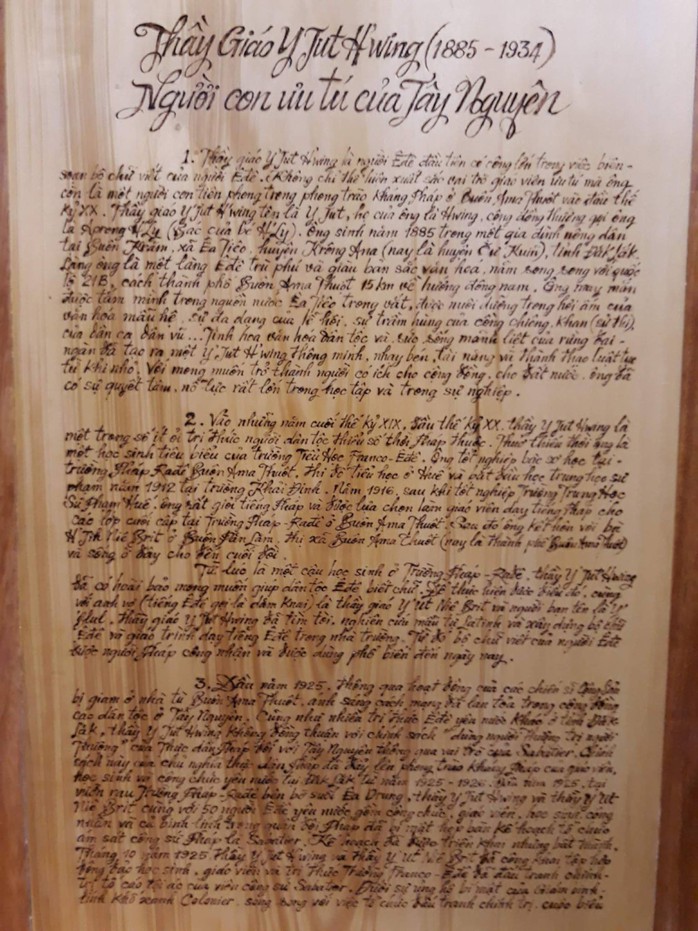 Thầy Giáo Y Jut H'wing (1885 - 1934)
Người con ưu tú của Tây Nguyên
1. Thầy giáo Y Jut Hwing là người Êđê đầu tiên có công lớn trong việc biên-
soạn bộ chữ viết của người Êđê. Không chỉ thể hiện xuất sắc vai trò giáo viên ưu tú mà ông
còn là một người con tiên phong trong phong trào kháng Pháp ở Buôn Ama Thuột vào đầu thế
kỷ XX. Thầy giáo Y Jut Hwing tên là Y Jut, họ của ông là Hwing, cộng đồng thường gọi ông
là Aprong H'Ly (Bác của bé H'Ly). Ông sinh năm 1885 trong một gia đình nông dân
tại Buôn Krăm, xã Ea Tiêu, huyện Krông Ana (nay là huyện Cư Kuin), tỉnh Đắk Lắk.
Làng ông là một làng Êđê trù phú và giàu bản sắc văn hóa, nằm song song với quốc
lộ 21B, cách thành phố Buôn Ama Thuột 15 km về hướng đông nam. Ông may mắn
được tắm mình trong nguồn nước Ea Tiêu trong vắt, được nuôi dưỡng trong hơi ấm của
văn hóa mẫu hệ, sự đa dạng của lễ hội, sự trầm hùng của cồng chiêng, khan (sử thi),
của dân ca, dân vũ... Tinh hoa văn hóa dân tộc và sức sống mãnh liệt của rừng đại-
ngàn đã tạo ra một Y Jut Hwing thông minh, nhạy bén, tài năng và thành thạo luật tục
từ khi nhỏ. Với mong muốn trở thành người có ích cho cộng đồng, cho đất nước, ông đã
có sự quyết tâm, nỗ lực rất lớn trong học tập và trong sự nghiệp.
2. Vào những năm cuối thế kỷ XIX, đầu thế kỷ XX, thầy Y Jut Hwing là
một trong số ít ỏi trí thức người dân tộc thiểu số thời Pháp thuộc. Thuở thiếu thời ông là
một học sinh tiêu biểu của trường Tiểu Học Franco-Êđê. Ông tốt nghiệp bậc sơ học tại-
trường Pháp Rađê Buôn Ama Thuột. Thi đỗ tiểu học ở Huế và bắt đầu học trung học sư
phạm năm 1912 tại trường Khải Định. Năm 1916, sau khi tốt nghiệp Trường Trung Học
Sư Phạm Huế, ông rất giỏi tiếng Pháp và được lựa chọn làm giáo viên dạy tiếng Pháp cho
các lớp cuối cấp tại Trường Pháp-Rađê ở Buôn Ama Thuột. Sau đó ông kết hôn với bà
H'Juk Niê Brit ở Buôn Păn Lăm, thị xã Buôn Ama Thuột (nay là thành phố Buôn Ama Thuột)
và sống ở đây cho đến cuối đời.
Từ lúc là một cậu học sinh ở Trường Pháp-Rađê, thầy Y Jut Hwing
đã có hoài bão mong muốn giúp dân tộc Êđê biết chữ. Để thực hiện được điều đó, cùng
với anh vợ (tiếng Êđê gọi là đăm knai) là thầy giáo Y Ut Niê Brit và người bạn tên là Y
Jut. Thầy giáo Y Jut Hwing đã tìm tòi, nghiên cứu mẫu tự Latinh và xây dựng bộ chữ
Êđê và giáo trình dạy tiếng Êđê trong nhà trường. Từ đó bộ chữ viết của người Êđê
được người Pháp công nhận và được dùng phổ biến đến ngày nay.
3. Đầu năm 1925, thông qua hoạt động của các chiến sĩ Cộng Sản
bị giam ở nhà tù Buôn Ama Thuột, ánh sáng cách mạng đã lan tỏa trong cộng đồng
các dân tộc ở Tây Nguyên. Cũng như nhiều trí thức Êđê yêu nước khác ở tỉnh Đắk
Lắk, thầy Y Jut Hwing không đồng thuận với chính sách "dùng người Thượng trị người
Thượng" của Thực dân Pháp đối với Tây Nguyên thông qua vai trò của Sabatier. Chính
sách này của chủ nghĩa thực dân Pháp đã đẩy lên phong trào kháng Pháp của giáo viên,
học sinh và công chức yêu nước tại Đắk Lắk từ năm 1925 - 1926. Đầu năm 1925, tại
vườn rau Trường Pháp-Rađê bên bờ suối Ea Drung, thầy Y Jut Hwing và thầy Y Ut
Niê Brit cùng với 50 người Êđê yêu nước gồm công chức, giáo viên, học sinh, công
nhân và cả binh lính trong quân đội Pháp đã bí mật họp bàn kế hoạch tổ chức
ám sát công sứ Pháp là Sabatier. Kế hoạch đã được triển khai nhưng bất thành.
Tháng 10 năm 1925 thầy Y Jut Hwing và thầy Y Ut Niê Brit đã công khai tập hợp
đông đảo học sinh, giáo viên và trí thức Trường Franco-Êđê đã đấu tranh chính-
trị, tố cáo tội ác của viên công sứ Sabatier. Dưới sự ủng hộ bí mật của Giám binh-
lính khố xanh Colonier, song song với việc tổ chức đấu tranh chính trị, cuộc biểu